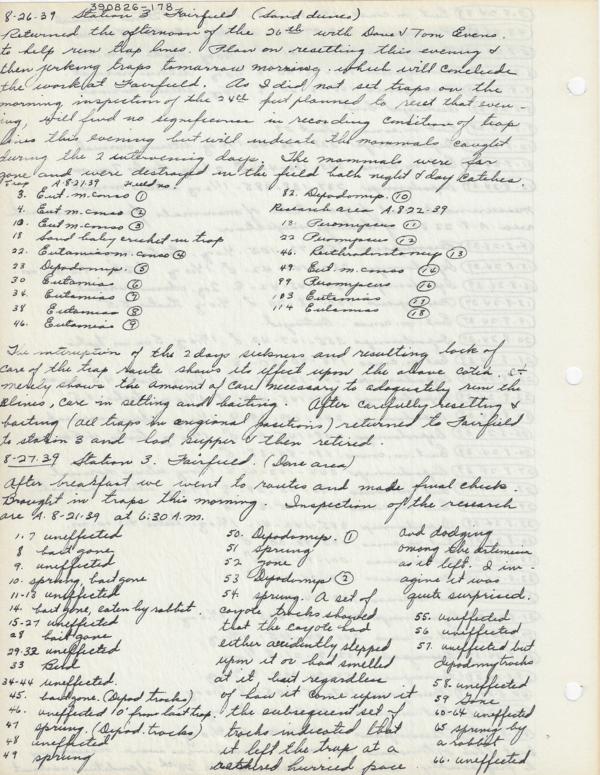 390826-178
8-26-39 Station 3 Fairfield (Sand dunes)
Returned the afternoon of the 26th with Dave & Tom Evans.
to help run trap lines. Plan on resetting this evening &
then jerking traps tomorrow morning. which will conclude
the work at Fairfield. As I did not set traps on the
morning inspection of the 24th but planned to reset that even-
ing, will find no significance in recording condition of trap
lines this evening but will indicate the mammals caught
during the 2 intervening days. The mammals were far
gone and were destroyed in the field both night & day catches.
Trap A.8-21-39 Field no.
3. Eut. m. conso ①
4. Eut m. conso ②
10. Eut m conso ③
18 Sand baby cricket in trap
22. Eutamias m. conso ④
23 Dipodomys. ⑤
30 Eutamias ⑥
34. Eutamias ⑦
38 Eutamias ⑧
46. Eutamias ⑨
82. Dipodomys. ⑩
Research area A.8-22-39
13. Peromyscus ⑪
22 Peromyscus ⑫
46. Reithrodontomys ⑬
49 Eut. m. conso ⑭
99 Peromyscus ⑯
103 Eutamias ⑰
114 Eutamias ⑱
The interruption of the 2 days sickness and resulting lack of
care of the trap route shows its effect upon the above catch. It
merely shows the amount of care necessary to adequately run the
lines, care in setting and baiting. After carefully resetting &
baiting (all traps in original positions) returned to Fairfield
to station 3 and had supper & then retired.
8-27-39 Station 3. Fairfield. (Dune area)
After breakfast we went to routes and made final checks.
Brought in traps this morning. Inspection of the research
are A. 8-21-39 at 6:30 A.M.
1-7 uneffected
8 bait gone
9. uneffected
10. sprung, bait gone
11-13 uneffected
14. bait gone, eaten by rabbit.
15-27 uneffected
28 bait gone
29-32 uneffected
33 Bird
34-44 uneffected.
45. bait gone. (Dipod tracks)
46. uneffected 10' from last trap.
47 sprung. (Dipod. tracks)
48 uneffected
49 sprung
50. Dipodomys. ①
51 sprung
52 gone
53 Dipodomys ②
54. sprung. A set of
coyote tracks showed
that the coyote had
either accidently stepped
upon it or had smelled
at it, but regardless
of how it came upon it
the subsequent set of
tracks indicated that
it left the trap at a
rathered hurried pace
and dodging
among the artemesia
as it left. I im-
agine it was
quite surprised.
55. uneffected
56 uneffected
57. uneffected but
dipodomy tracks
58. uneffected
59 Gone
60-64 uneffected
65 sprung by
a rabbit
66. uneffected